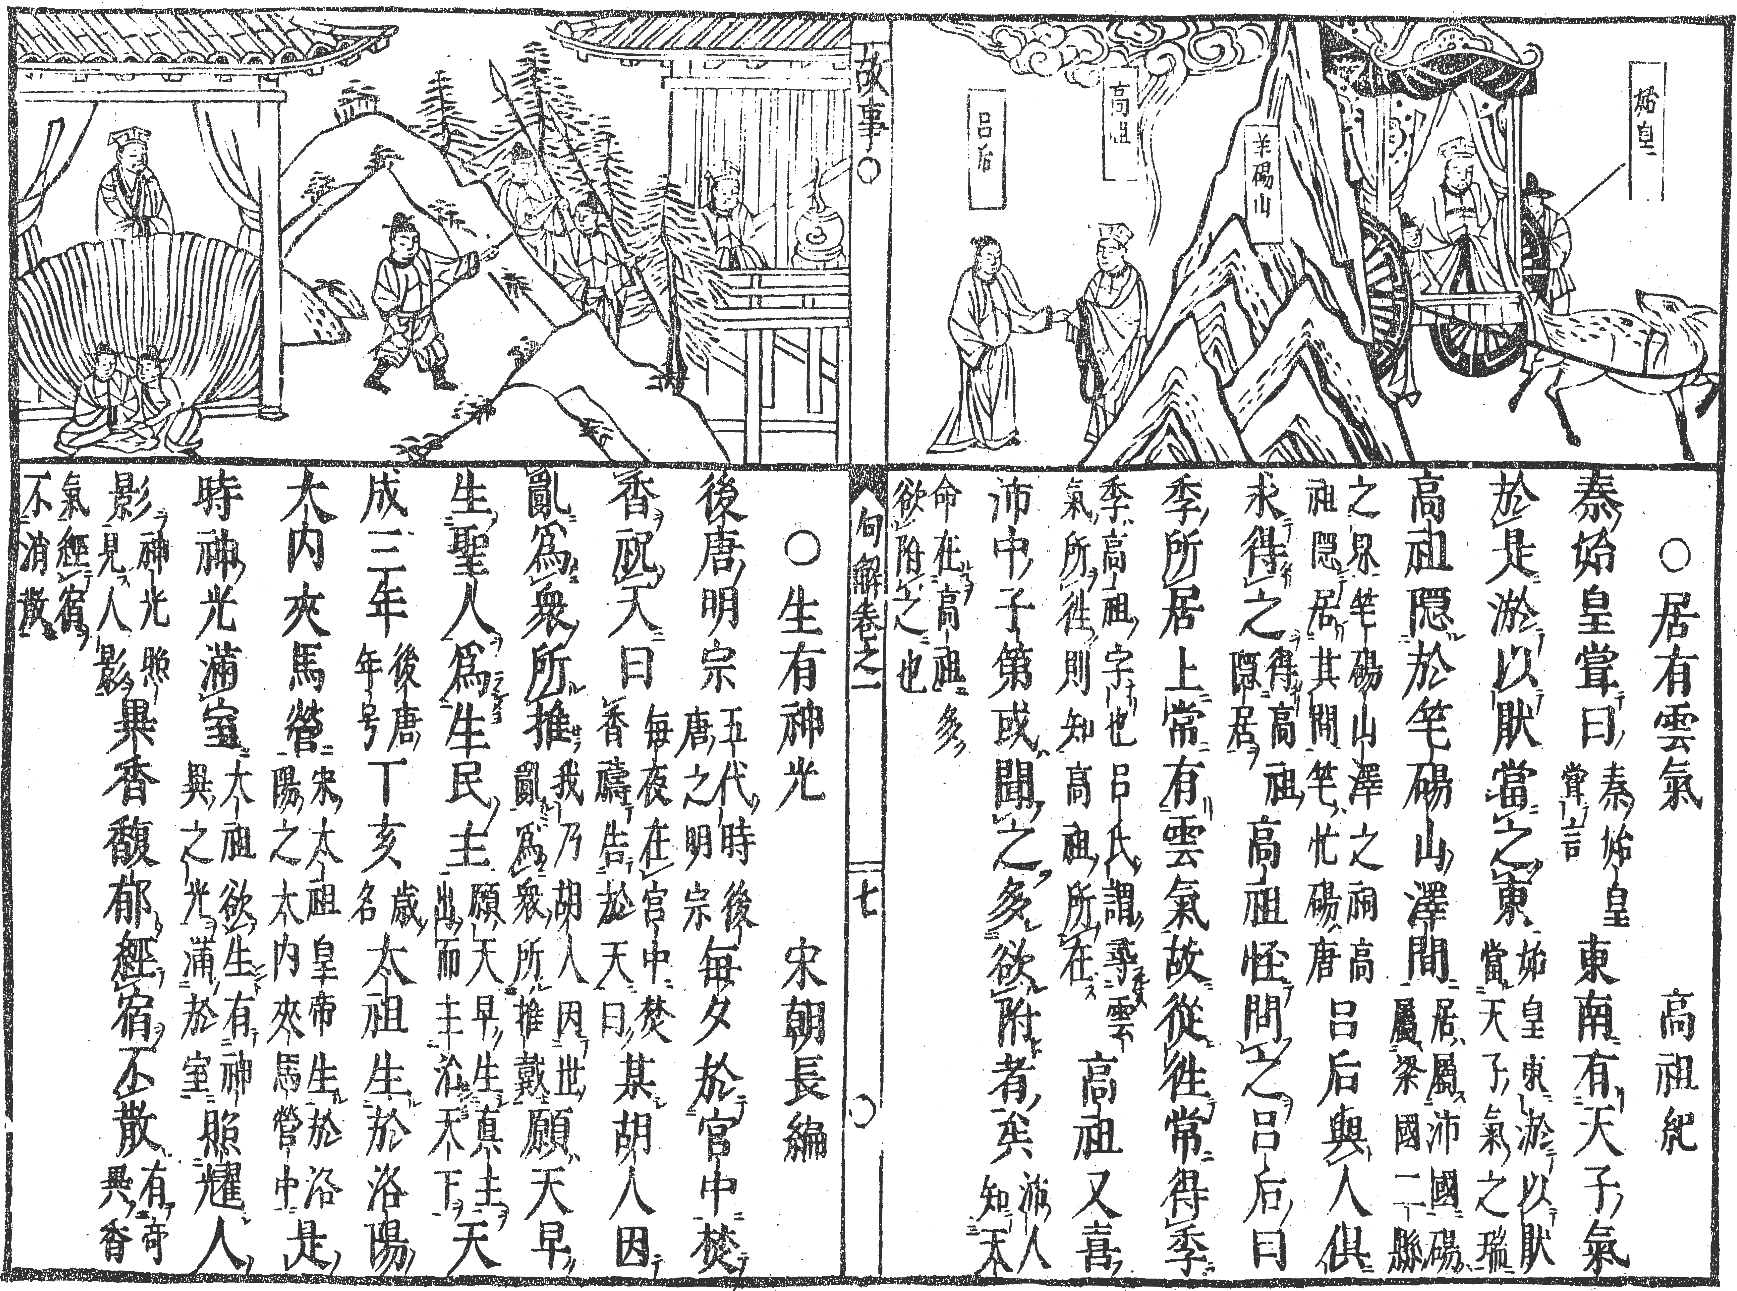 始皇
芒碭山
高祖
呂后
○居有雲氣 高祖紀
秦始皇嘗曰秦始皇嘗言東南有天子氣
於是游以猒當之東始皇東游以猒當天子氣之瑞
高祖隱於芒碭山澤間居屬沛國碭屬梁國二縣
之界芒碭山澤之祠高祖隱居其間芒忙碭唐呂后與人俱
求得之得高祖隱居高祖怪問之呂后曰
季所居上常有雲氣故從往常得季
季高祖字也呂氏謂尋雲氣所往則知高祖所在高祖又喜
沛中子弟或聞之多欲附者矣沛人知天
命在高祖多欲附之也
故事○
句解卷之一
七
○生有神光 宋朝長編
後唐明宗五代時後唐之明宗每夕於宮中焚
香祝天曰每夜在宮中焚香禱告於天曰某胡人因
亂為眾所推我乃胡人因世亂為眾所推戴願天早
生聖人為生民主願天早生真主出而主治天下天
成三年後唐年号丁亥歲名太祖生於洛陽
大內夾馬營宋太祖皇帝生於洛陽之大內夾馬營中是
時神光滿室太祖欲生有神異之光滿於室照耀人
影神光照見人影異香馥郁經宿不散有奇異香
氣經宿不消散